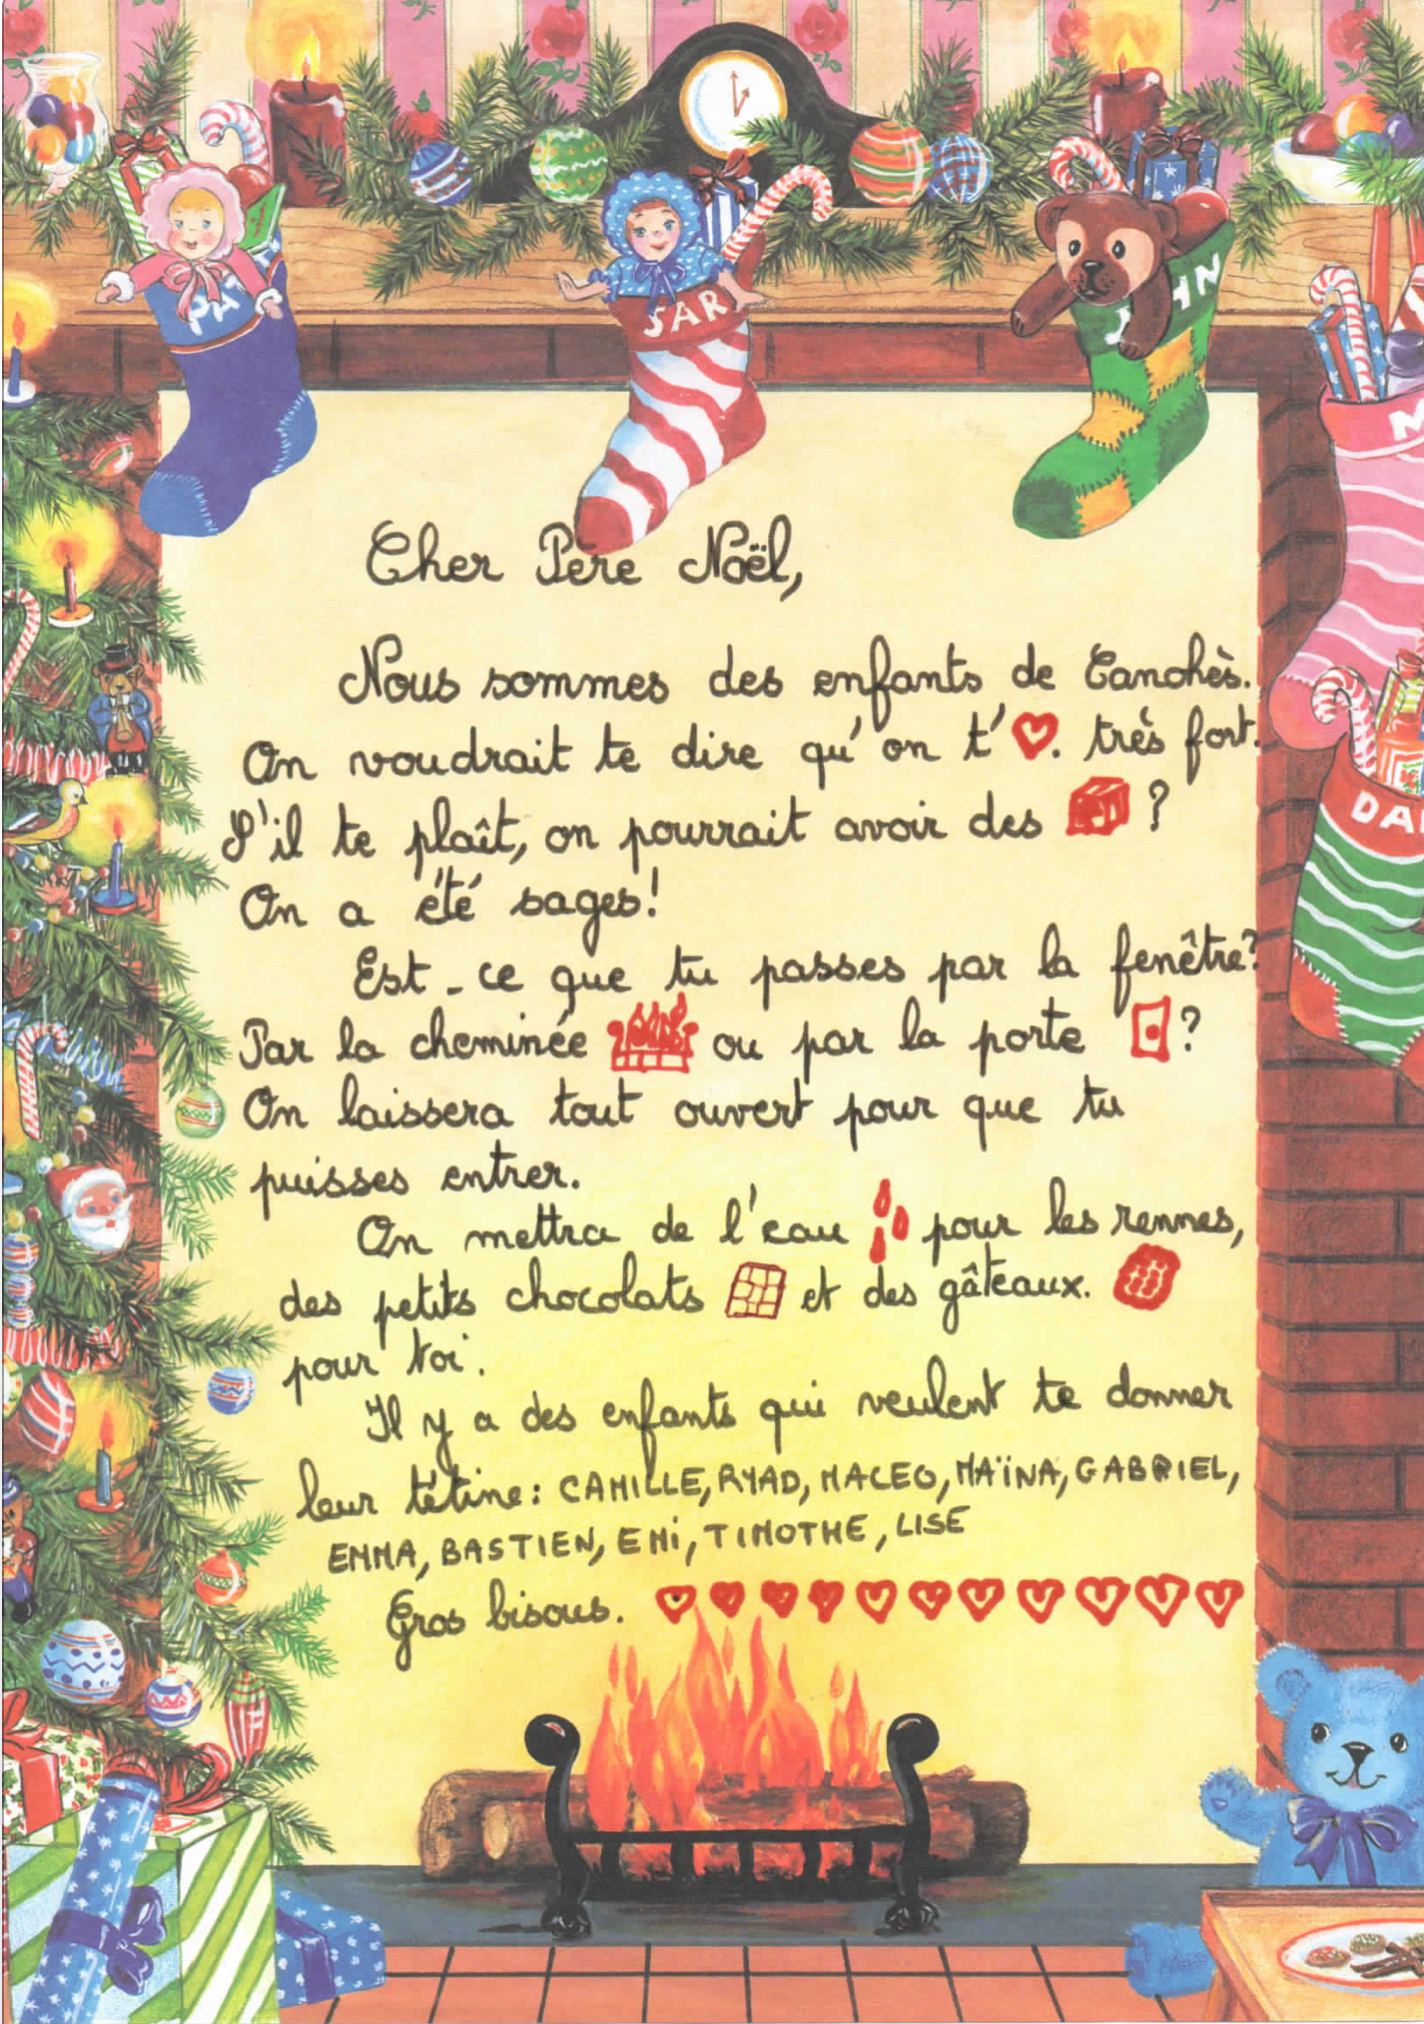 PAT
SARA
JHN
M
DA
Cher Père Noël,
Nous sommes des enfants de Canohès.
On voudrait te dire qu'on t'❤. très fort.
S'il te plaît, on pourrait avoir des ?
On a été sages!
Est-ce que tu passes par la fenêtre?
Par la cheminée ou par la porte ?
On laissera tout ouvert pour que tu
puisses entrer.
On mettra de l'eau pour les rennes,
des petits chocolats et des gâteaux.
pour toi.
Il y a des enfants qui veulent te donner
leur tétine: CAMILLE, RYAD, MACEO, MAÏNA, GABRIEL,
EMMA, BASTIEN, EMi, TIMOTHE, LISE
Gros bisous.